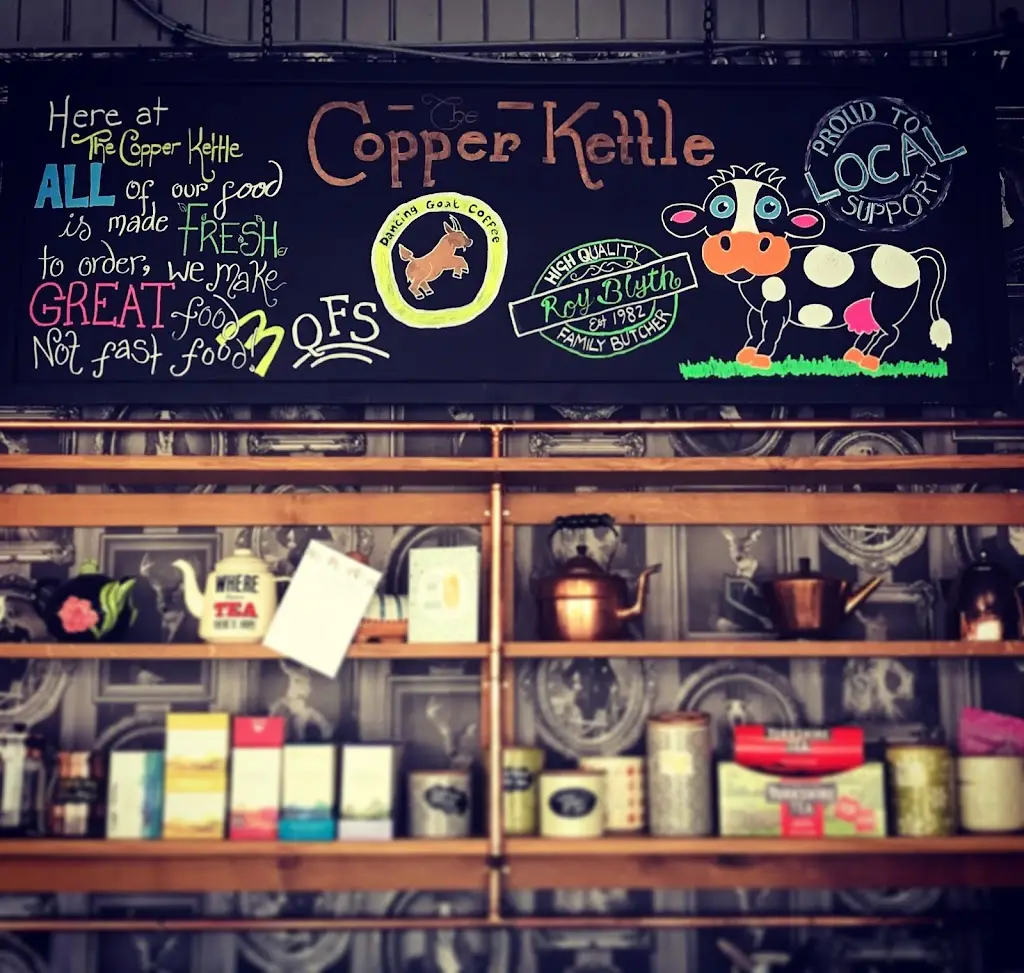 Here at
The Copper Kettle
ALL of our food
is made FRESH
to order, we make
GREAT food
Not fast food!
QFS
The
Copper Kettle
Dancing Goat Coffee
HIGH QUALITY
Roy Blyth
Est 1982
FAMILY BUTCHER
PROUD TO
LOCAL
SUPPORT
WHERE
TEA
YORKSHIRE
TEA
YORKSHIRE
TEA